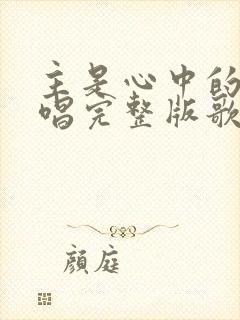 主是心中的
唱完整版歌
顔庭